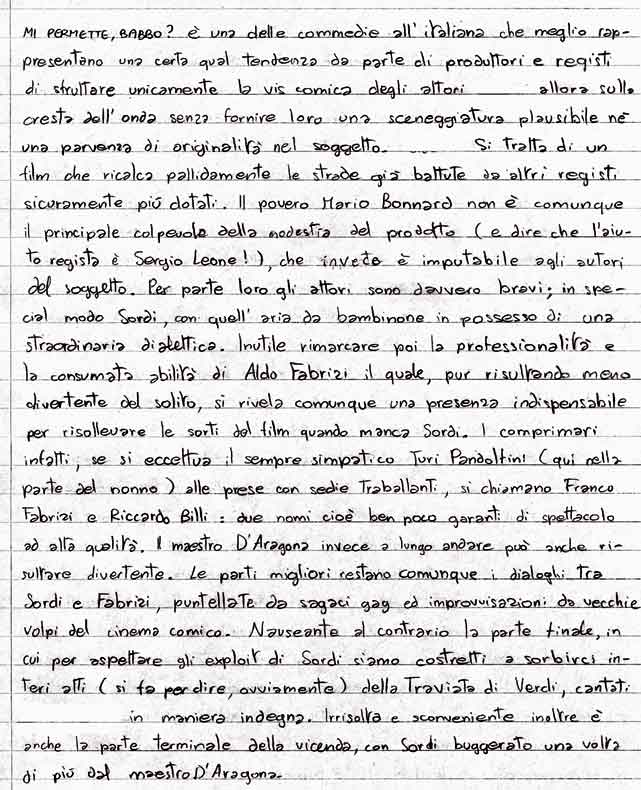 MI PERMETTE, BABBO? è una delle commedie all'italiana che meglio rap-
presentano una certa qual tendenza da parte di produttori e registi
di sfruttare unicamente la vis comica degli attori allora sulla
cresta dell'onda senza fornire loro una sceneggiatura plausibile né
una parvenza di originalità nel soggetto. Si tratta di un
film che ricalca pallidamente le strade già battute da altri registi
sicuramente più dotati. Il povero Mario Bonnard non è comunque
il principale colpevole della modestia del prodotto (e dire che l'aiu-
to regista è Sergio Leone!), che invece è imputabile agli autori
del soggetto. Per parte loro gli attori sono davvero bravi; in spe-
cial modo Sordi, con quell'aria da bambinone in possesso di una
straordinaria dialettica. Inutile rimarcare poi la professionalità e
la consumata abilità di Aldo Fabrizi il quale, pur risultando meno
divertente del solito, si rivela comunque una presenza indispensabile
per risollevare le sorti del film quando manca Sordi. I comprimari
infatti, se si eccettua il sempre simpatico Turi Pandolfini (qui nella
parte del nonno) alle prese con sedie traballanti, si chiamano Franco
Fabrizi e Riccardo Billi: due nomi cioè ben poco garanti di spettacolo
ad alta qualità. Il maestro D'Aragona invece a lungo andare può anche ri-
sultare divertente. Le parti migliori restano comunque i dialoghi tra
Sordi e Fabrizi, puntellate da sagaci gag ed improvvisazioni da vecchie
volpi del cinema comico. Nauseante al contrario la parte finale, in
cui per aspettare gli exploit di Sordi siamo costretti a sorbirci in-
teri atti (si fa per dire, ovviamente) della Traviata di Verdi, cantati
in maniera indegna. Irrisolta e sconveniente inoltre è
anche la parte terminale della vicenda, con Sordi buggerato una volta
di più dal maestro D'Aragona.